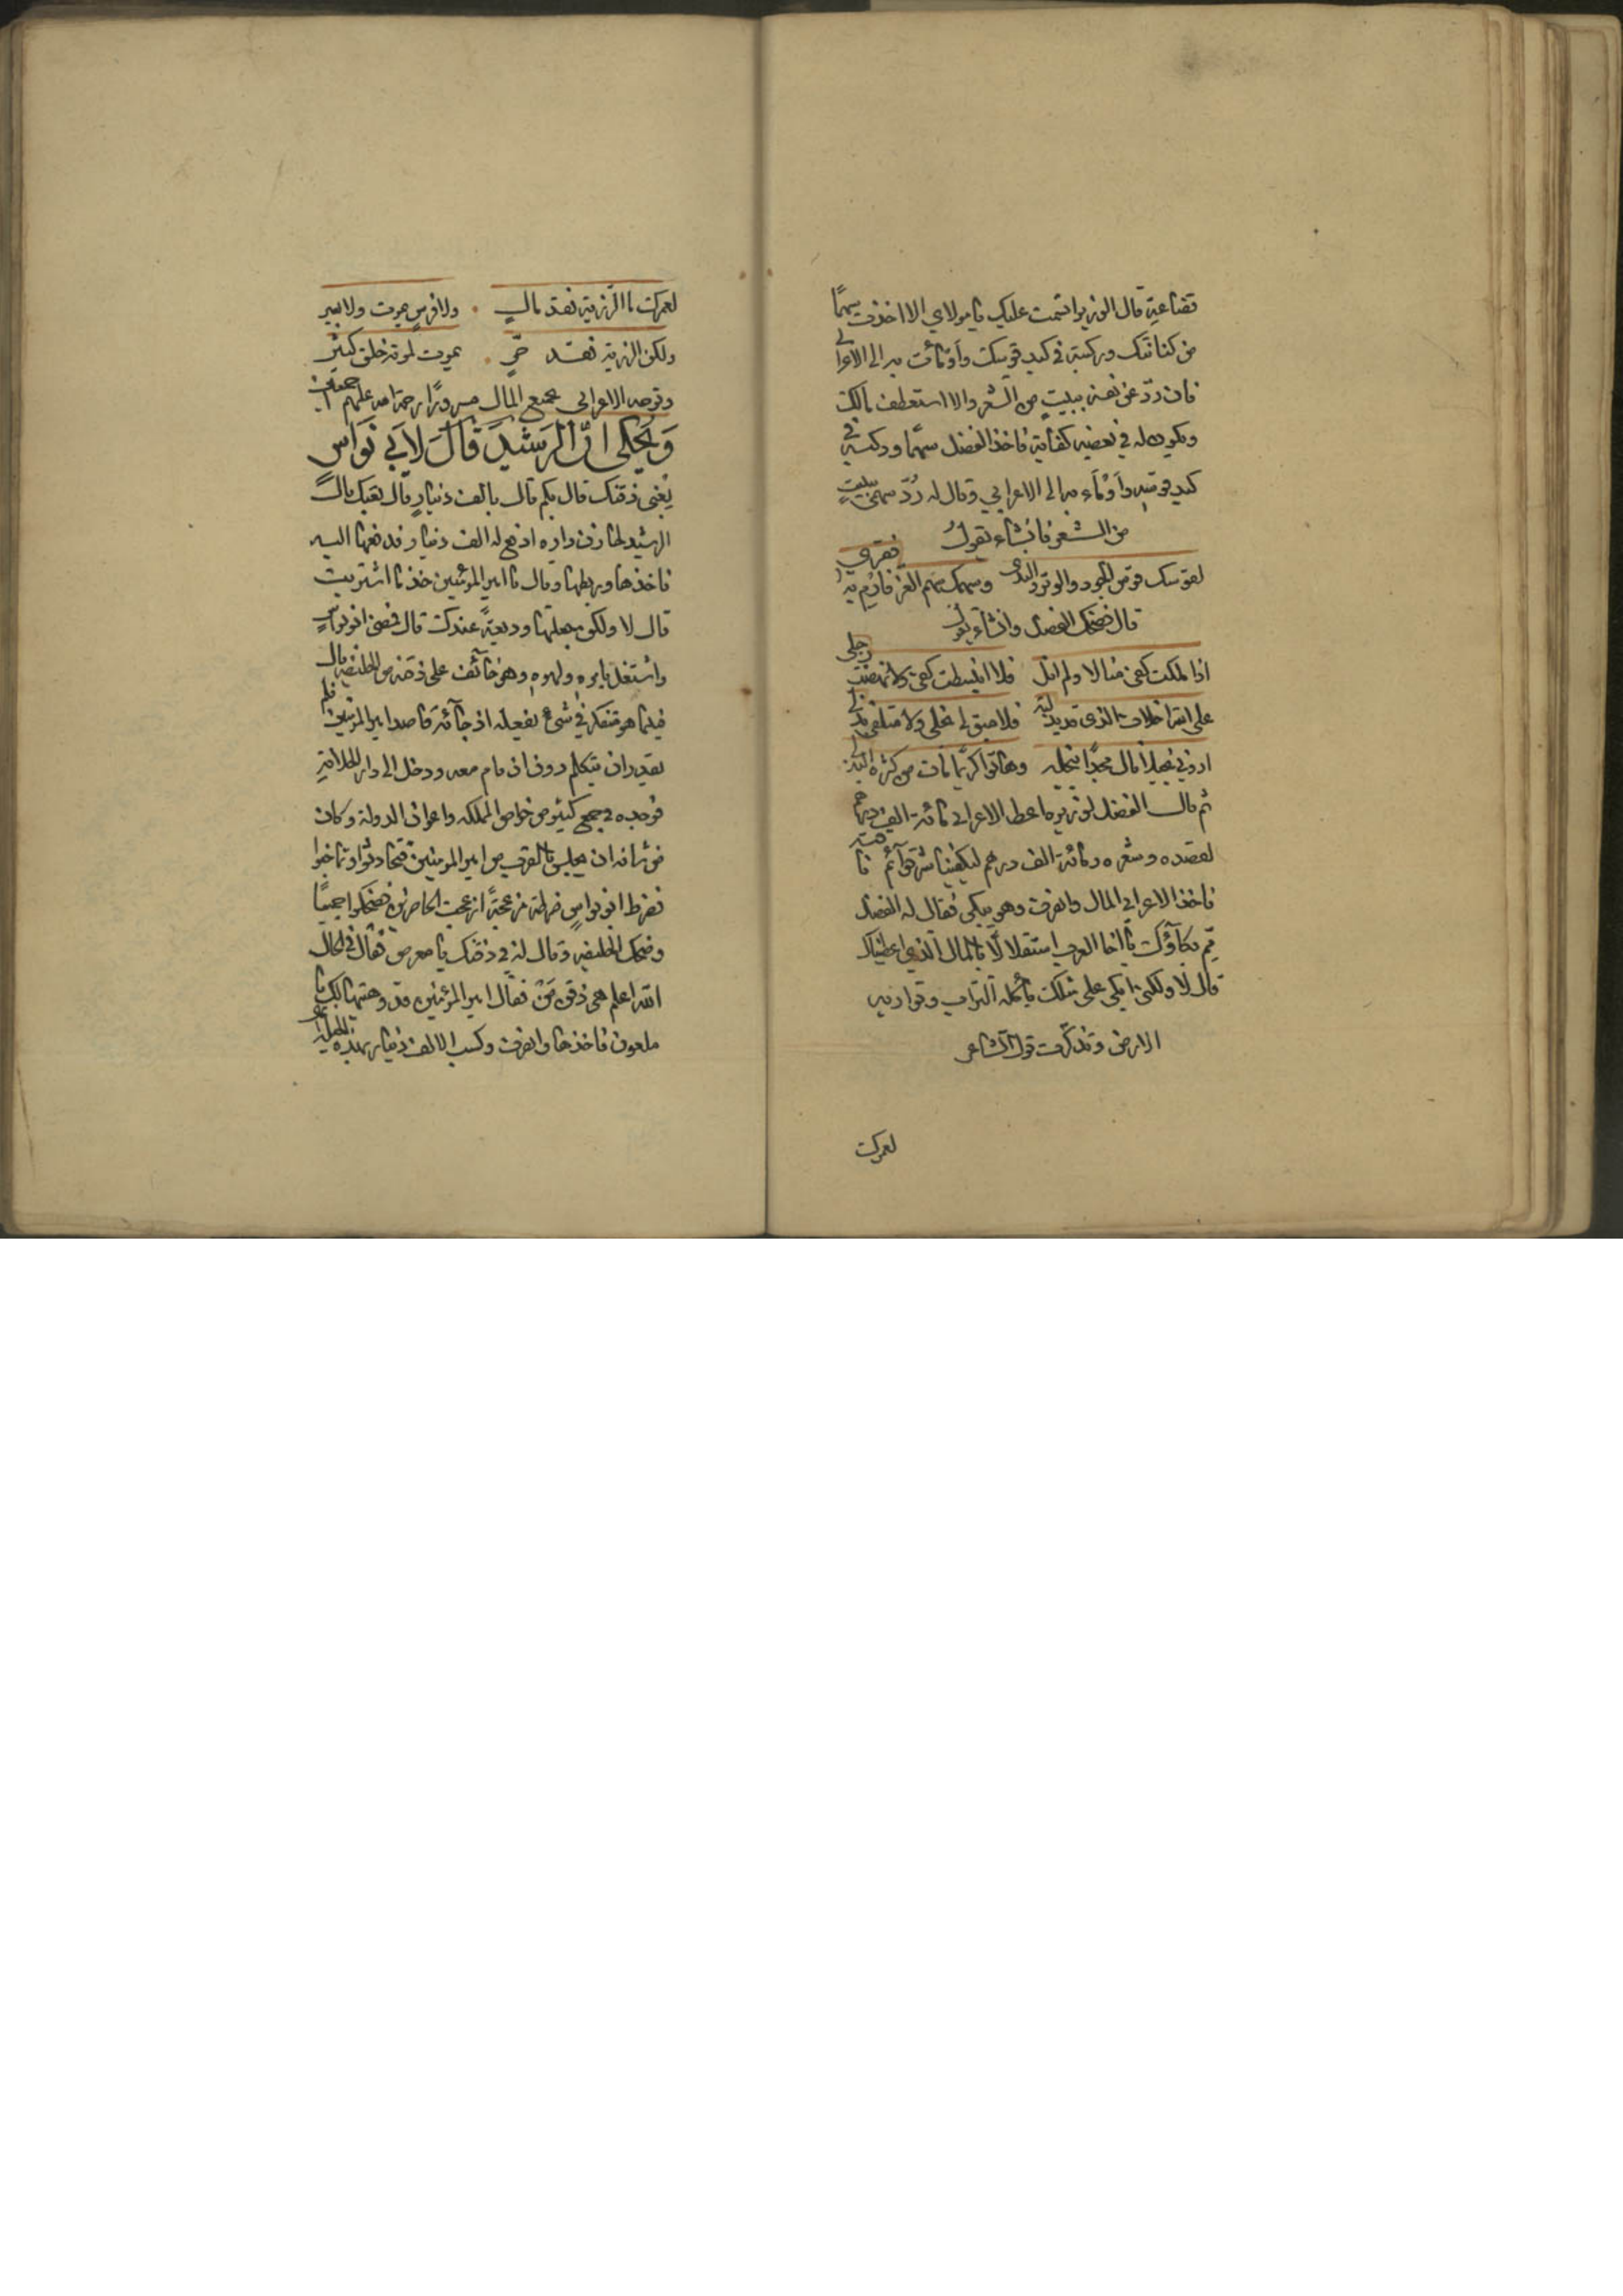 قضاعية قال الوزير اقسمت عليك يا مولاي الا اخذت سهمًا
من كنانتك وركبته في كبد قوسك وأومأت به الى الاعرابي
فان ردّ عن نفسه ببيتٍ من الشعر والا استعطف مالك
ويكون له في بعضه كفاية فاخذ الفضل سهمًا وركبه في
كبد قوسه وأومأء به الى الاعرابي وقال له رُدّ سهمي ببيتٍ
من الشعر فانشاء يقول
لقوسك قوس الجود والوتر الندى وسهمك سهم العز فارم به فقري
قال فضحك الفضل وانشاء يقول
اذا ملكت كفي منالا ولم انل فلا انبسطت كفي ولا نهضت رجلي
على الله اخلاف الذي قد بذلته فلا مبق لي بخلي ولا متلفي بذلي
اروني بخيلا نال مجدًا ببخله وهاتوا كريمًا مات من كثرة البذل
ثم قال الفضل لوزيره اعط الاعرابي مائة الف درهم
لقصده وشعره ومائة الف درهم ليكفينا شر قوائم ناقته
فاخذ الاعرابي المال وانصرف وهو يبكي فقال له الفضل
ممّ بكاؤك يا اخا العرب استقلالًا بالمال الذي اعطيناك
قال لا ولكني ابكي على مثلك يأكله التراب وتواريه
الارض وتذكّرت قول الشاعر
لعمرك
لعمرك ما الرزية فقد مالٍ . ولا فرس يموت ولا بعير
ولكن الرزية فقد حّرٍ . يموت لموته خلق كثير
وتوجه الاعرابي بجميع المال مسرورًا رحمة الله عليهم اجمعين
وَيُحكى انّ الرَشيدَ قالَ لاَبي نَوَاسٍ
بِعْني ذقنك قال بكم قال بالف دينارٍ قال بعتك قال
الرشيد لخازن داره ادفع له الف دينار فدفعها اليه
فاخذها وربطها وقال يا امير المؤمنين خذ ما اشتريت
قال لا ولكن جعلتها وديعةً عندك قال فمضى ابو نواسٍ
واشتغل بامره ولهوه وهو خائف على ذقنه من الخليفه قال
فبينما هو متفكر في شيء يفعله اذ جآئه قاصد امير المؤمنين فلم
يقدر ان يتكلم دون ان قام معه ودخل الى دار الخلافة
فوجده في جمع كثير من خواص المملكه واعوان الدولة وكان
من شانه ان يجلس بالقرب من امير المومنين فتحادثوا وتماجنوا
فضرط ابو نواسٍ ضرطة مزعجةً ازعجت الحاضرين فضحكوا جميعًا
وضحك الخليفه وقال له في ذقنك يا معرص فقال في الحال
الله اعلم هي ذقن مَنْ فقال امير المؤمنين قد وهبتها لك يا
ملعون فاخذها وانصرف وكسب الالف دينار بهذه الحيلة